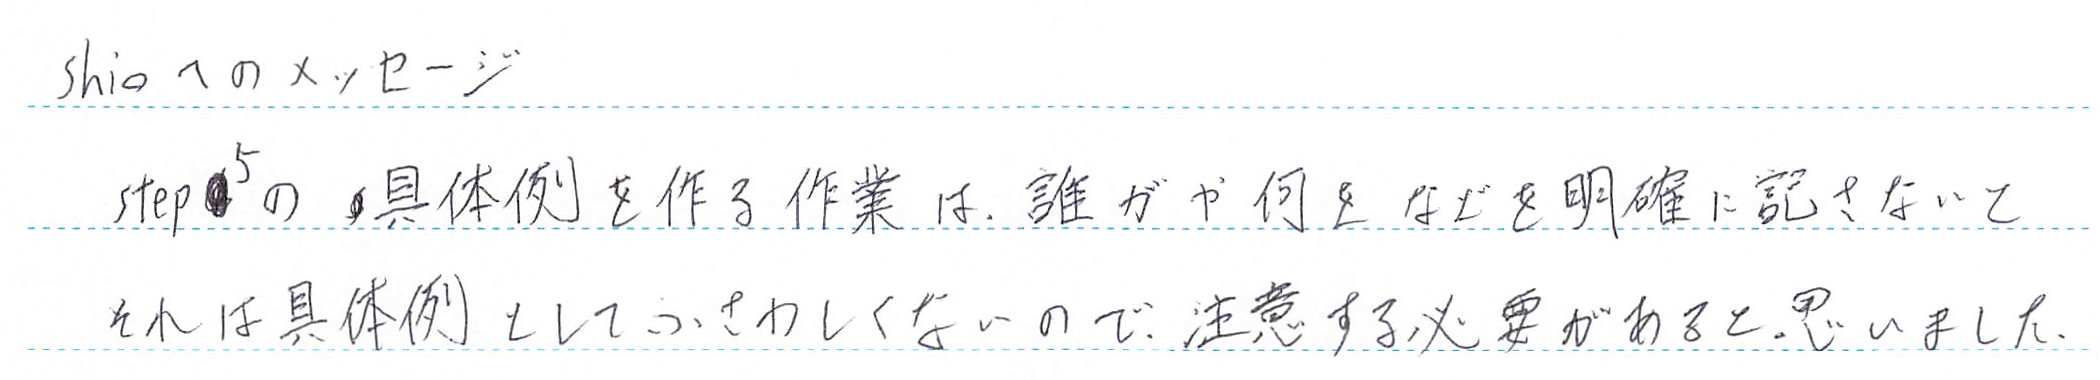 shioへのメッセージ
step5の具体例を作る作業は、誰がや何をなどを明確に記さないと
それは具体例としてふさわしくないので、注意する必要があると思いました。